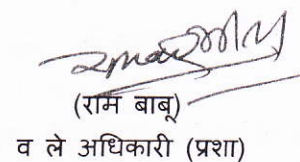 (राम बाबू)
व ले अधिकारी (प्रशा)